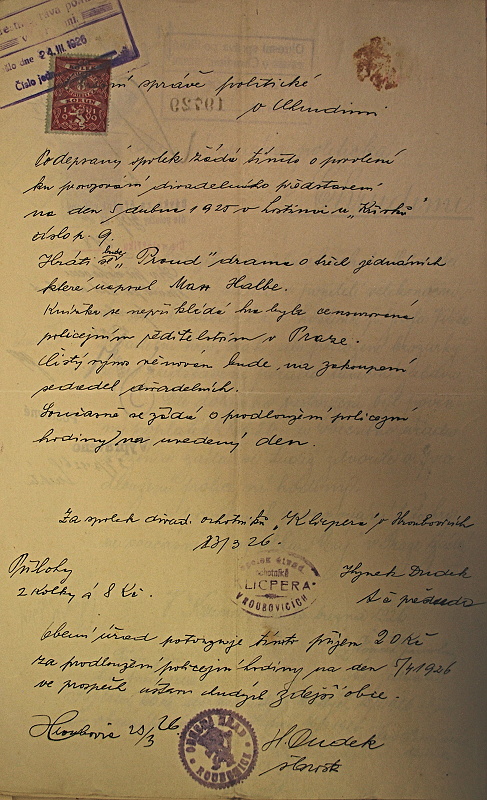 24.III.1926
Číslo jedn.
KORUN
správě politické
v Chrudimi
19729
Podepsaný spolek žádá tímto o povolení
ku pořádání divadelního představení
na den 5 dubna 1925 v hostinci u „Kirků"
číslo p. 9.
Hráti se bude „Proud" drama o třech jednáních
které napsal Max Halbe.
Knížka se nepřikládá ka byla censurována
policejním ředitelstvím v Praze.
Čistý výnos věnován bude, na zakoupení
sedadel divadelních.
Současně se žádá o prodloužení policejní
hodiny na uvedený den.
Za spolek divad. ochotníků „Klicpera" v Hroubovicích
23/3 26.
Přílohy
2 kolky á 8 Kč.
Spolek divad.
ochotníků
KLICPERA
V HROUBOVICÍCH
Hynek Dudek
Obecní úřad potvrzuje tímto příjem 20 Kč
za prodloužení policejní hodiny na den 5/4 1926
ve prospěch ústavu chudých zdejší obce.
Hroubovice 23/3 26.
OBECNÍ ÚŘAD
H. Dudek
starosta